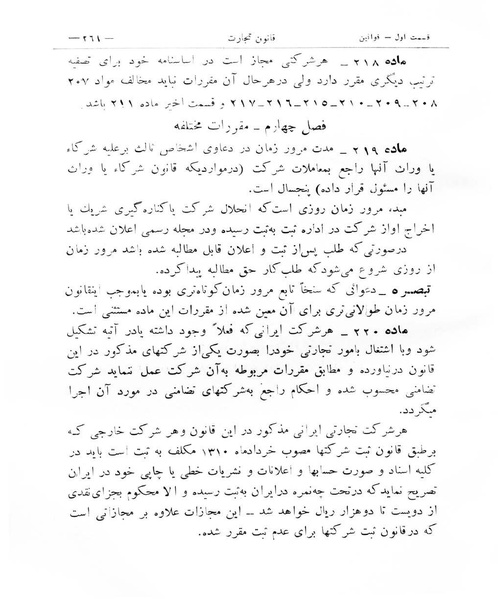 قسمت اول – قوانین
قانون تجارت
— ۲۶۱ —
ماده ۲۱۸ ـ هرشرکتی مجاز است در اساسنامه خود برای تصفیه
ترتیب دیگری مقرر دارد ولی درهرحال آن مقررات نباید مخالف مواد ۲۰۷
۲۰۸ـ۲۰۹ـ۲۱۰ـ۲۱۵ـ۲۱۶ـ۲۱۷ و قسمت اخیر ماده ۲۱۱ باشد.
فصل چهارم ـ مقررات مختلفه
ماده ۲۱۹ ـ مدت مرور زمان در دعاوی اشخاص ثالث برعلیه شرکاء
یا وراث آنها راجع بمعاملات شرکت (درمواردیکه قانون شرکاء یا وراث
آنها را مسئول قرار داده) پنجسال است.
مبدء مرور زمان روزی است‌که انحلال شرکت یاکناره‌گیری شریك یا
اخراج اواز شرکت در اداره ثبت به‌ثبت رسیده ودر مجله رسمی اعلان شده‌باشد
درصورتی‌که طلب پس‌از ثبت و اعلان قابل مطالبه شده باشد مرور زمان
از روزی شروع می‌شودکه طلب‌کار حق مطالبه پیداکرده.
تبصره ـ دعوائی که سنخاً تابع مرور زمان‌کوتاه‌تری بوده یابموجب اینقانون
مرور زمان طولانی‌تری برای آن معین شده از مقررات این ماده مستثنی است.
ماده ۲۲۰ ـ هرشرکت ایرانی‌که فعلاً وجود داشته یادر آتیه تشکیل
شود وبا اشتغال بامور تجارتی خودرا بصورت یکی‌از شرکتهای مذکور در این
قانون درنیاورده و مطابق مقررات مربوطه به‌آن شرکت عمل ننماید شرکت
تضامنی محسوب شده و احکام راجع به‌شرکتهای تضامنی در مورد آن اجرا
میگردد.
هرشرکت تجارتی ایرانی مذکور در این قانون وهر شرکت خارجی که
برطبق قانون ثبت شرکتها مصوب خردادماه ۱۳۱۰ مکلف به ثبت است باید در
کلیه اسناد و صورت حسابها و اعلانات و نشریات خطی یا چاپی خود در ایران
تصریح نمایدکه درتحت چه‌نمره درایران به‌ثبت رسیده و الا محکوم بجزای‌نقدی
از دویست تا دوهزار ریال خواهد شد ـ این مجازات علاوه بر مجازاتی است
که درقانون ثبت شرکتها برای عدم ثبت مقرر شده.